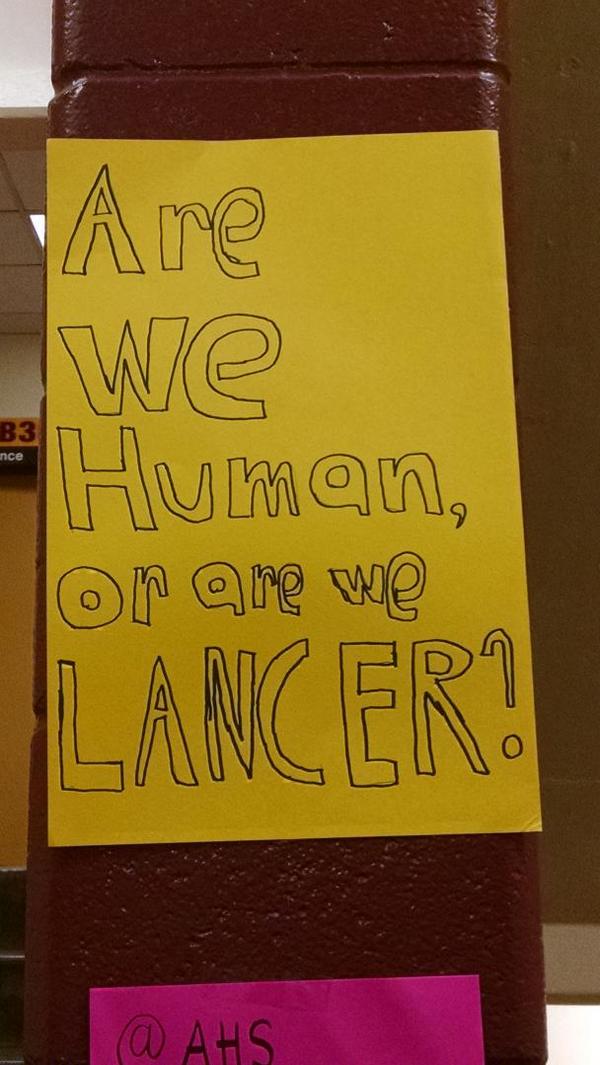 Are
we
Human,
or are we
LANCER?
@ AHS
B3
nce